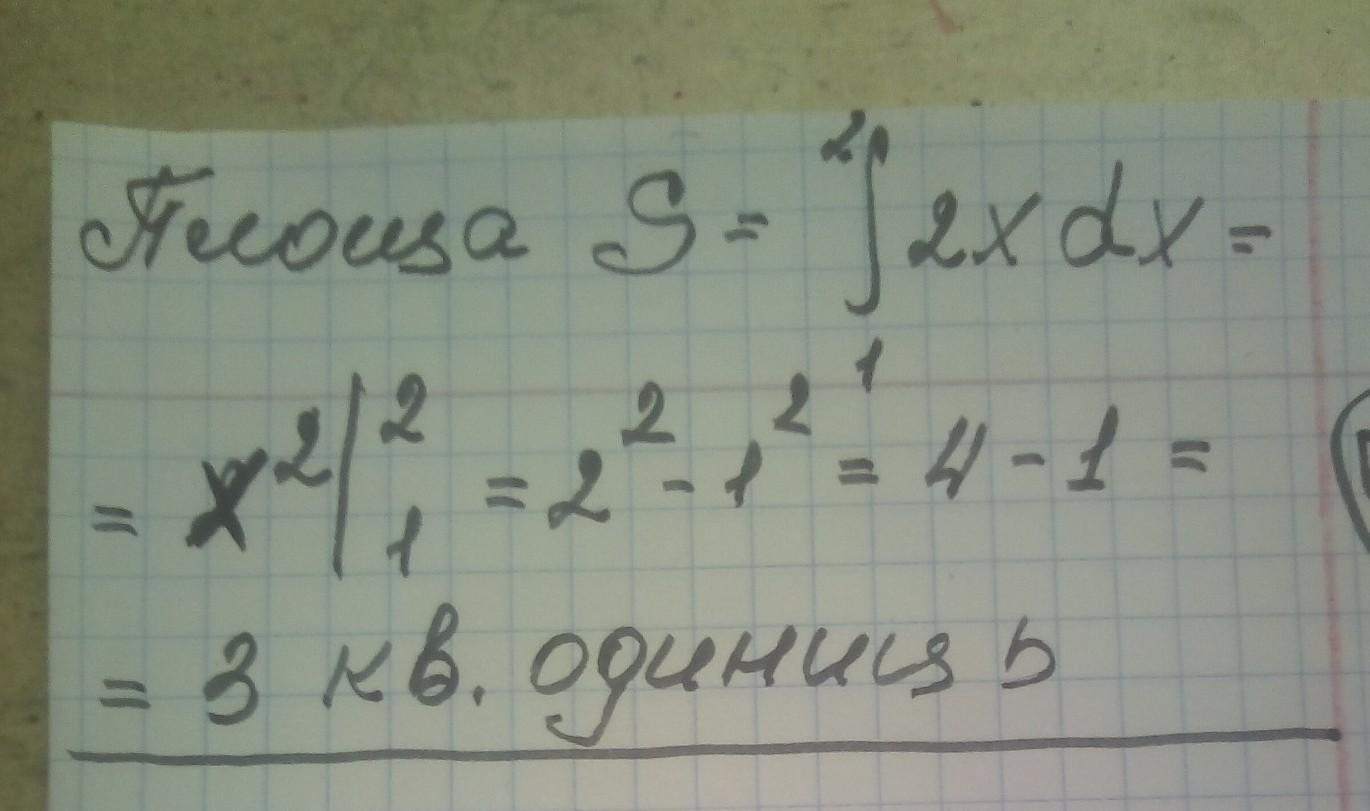 Площа S = ∫₁² 2x dx =
= x² |₁² = 2² - 1² = 4 - 1 =
= 3 кв. одиниць